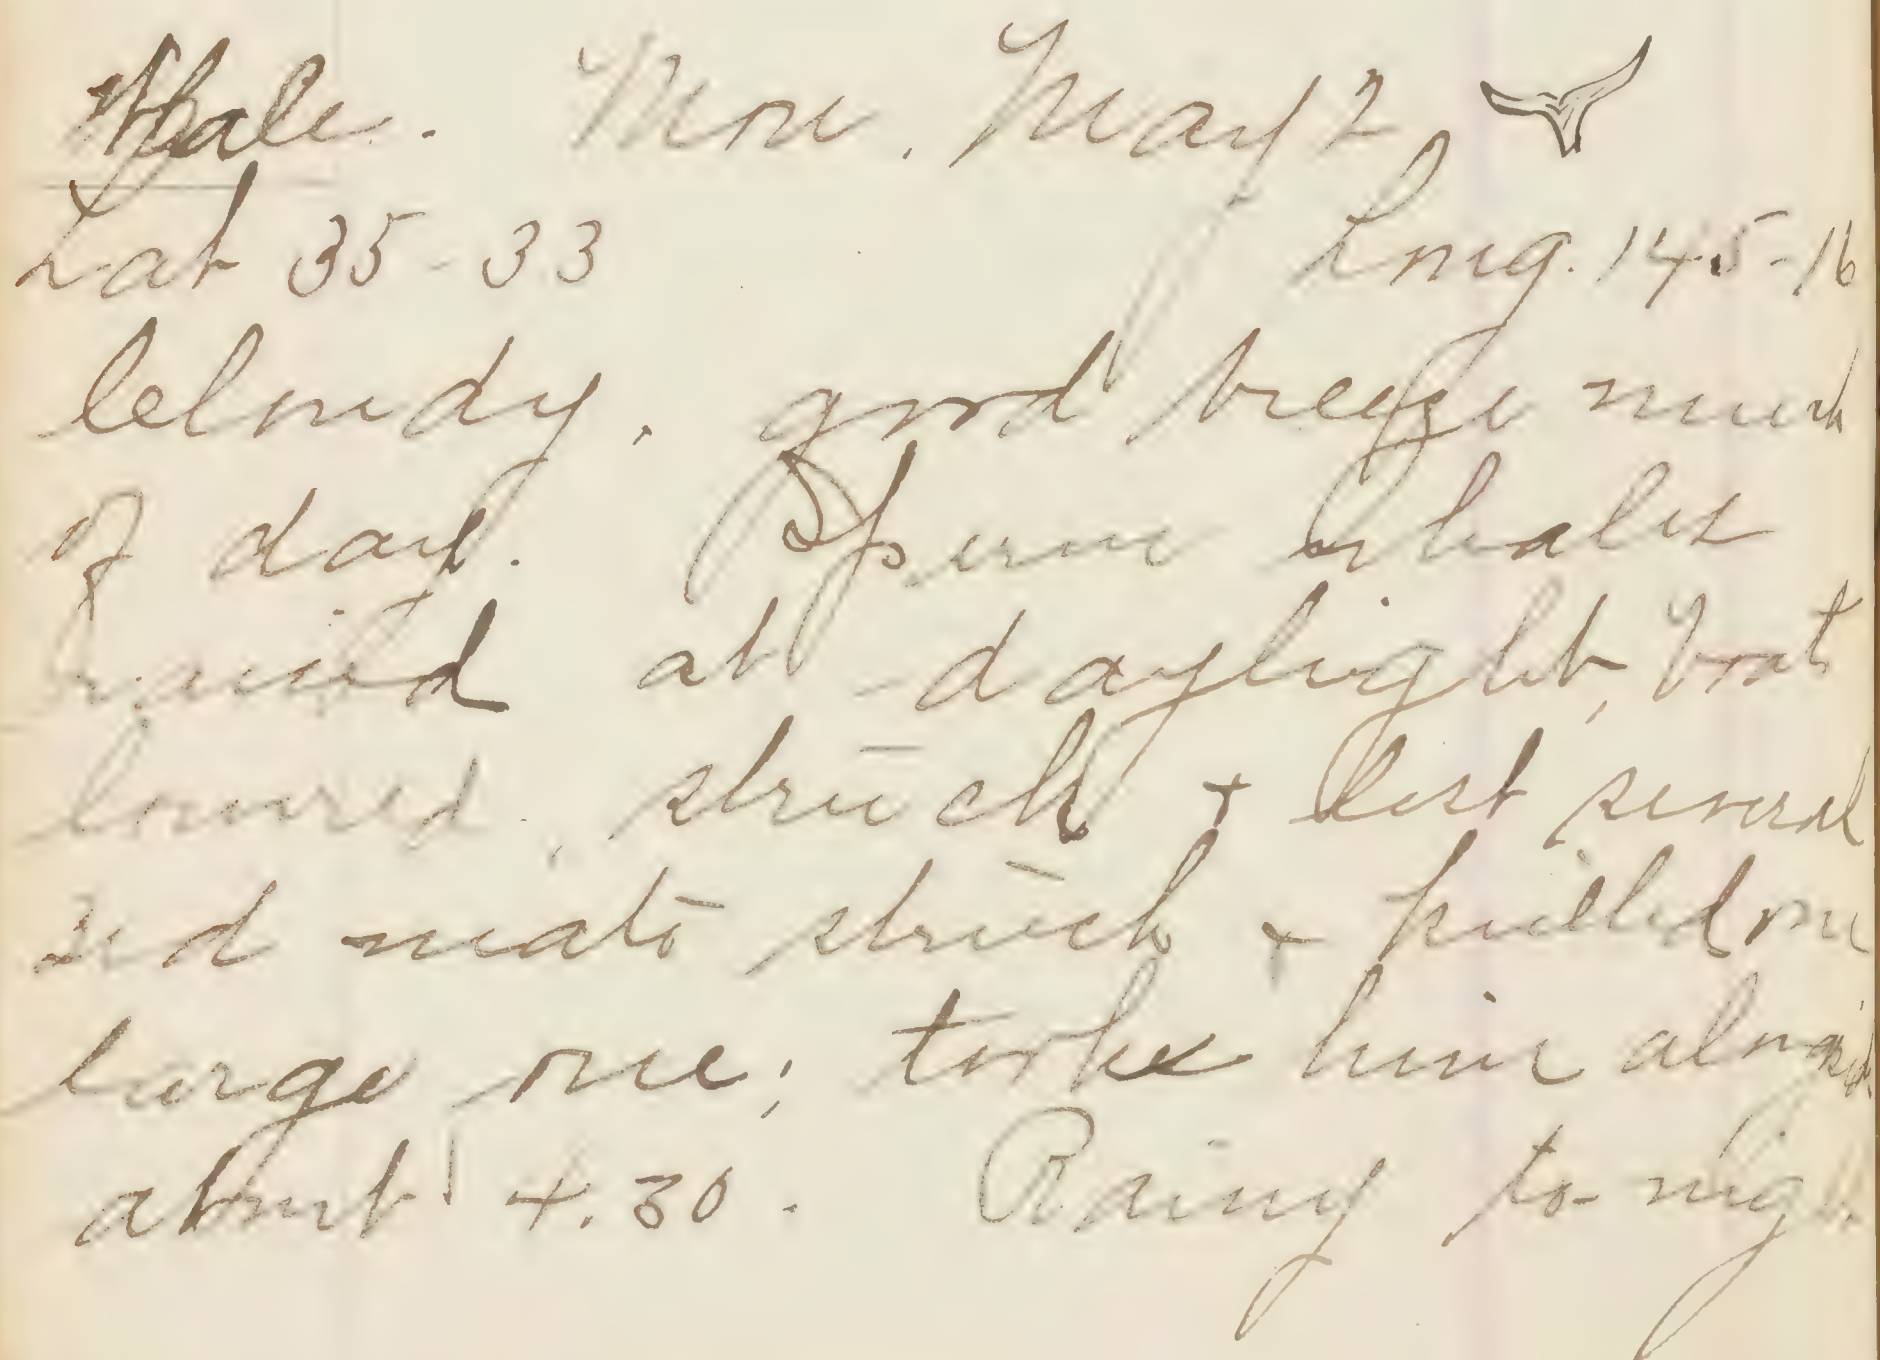 Whale. Mon. May 2
Lat 35-33 Long. 145-16
Cloudy. good breeze much
of day. Sperm whales
raised at daylight, boats
lowered, struck + lost several
2nd mate struck + killed one
large one; took him alongside
about 4.30. Rainy to-night